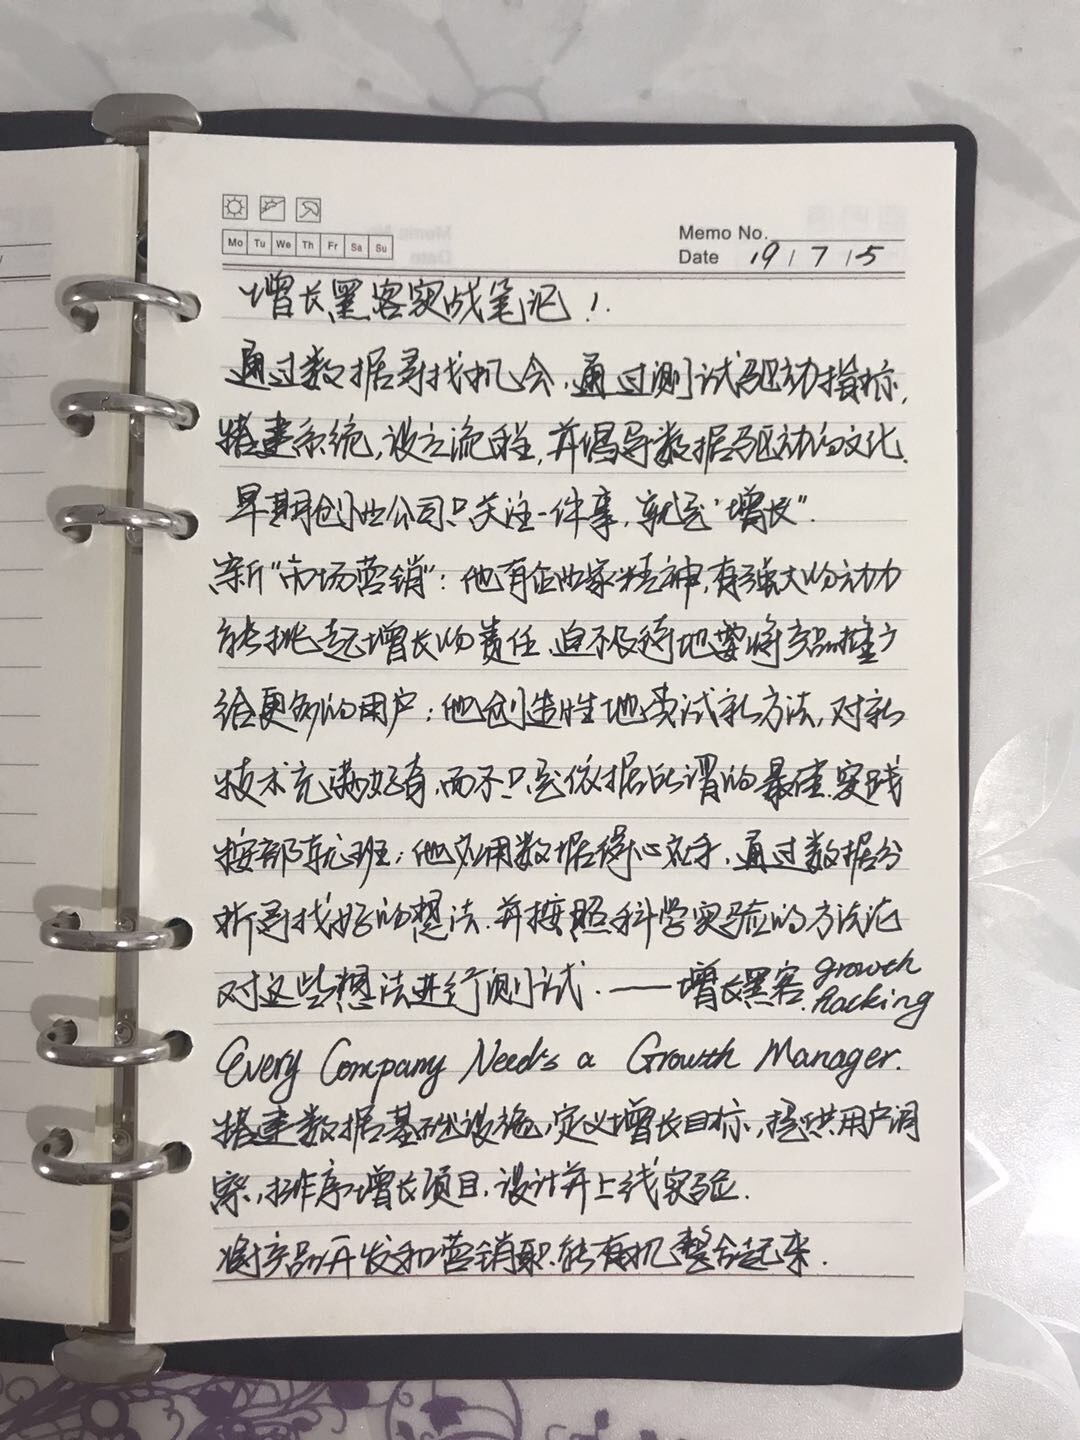 Memo No.
Mo Tu We Th Fr Sa Su
Date 19 / 7 / 5
增长黑客实战笔记！
通过数据寻找机会，通过测试驱动指标，
搭建系统，设立流程，并倡导数据驱动的文化.
早期创业公司只关注一件事，就是“增长”.
新“市场营销”：他有企业家精神，有强大的动力
能挑起增长的责任，迫不及待地要将产品推广
给更多的用户；他创造性地尝试新方法，对新
技术充满好奇，而不只是依据所谓的最佳实践
按部就班；他应用数据得心应手，通过数据分
析寻找好的想法，并按照科学实验的方法论
对这些想法进行测试. ——增长黑客. growth
hacking
Every Company Needs a Growth Manager.
搭建数据基础设施，定义增长目标，提供用户洞
察，排序增长项目，设计并上线实验.
将产品开发和营销职能有机整合起来.